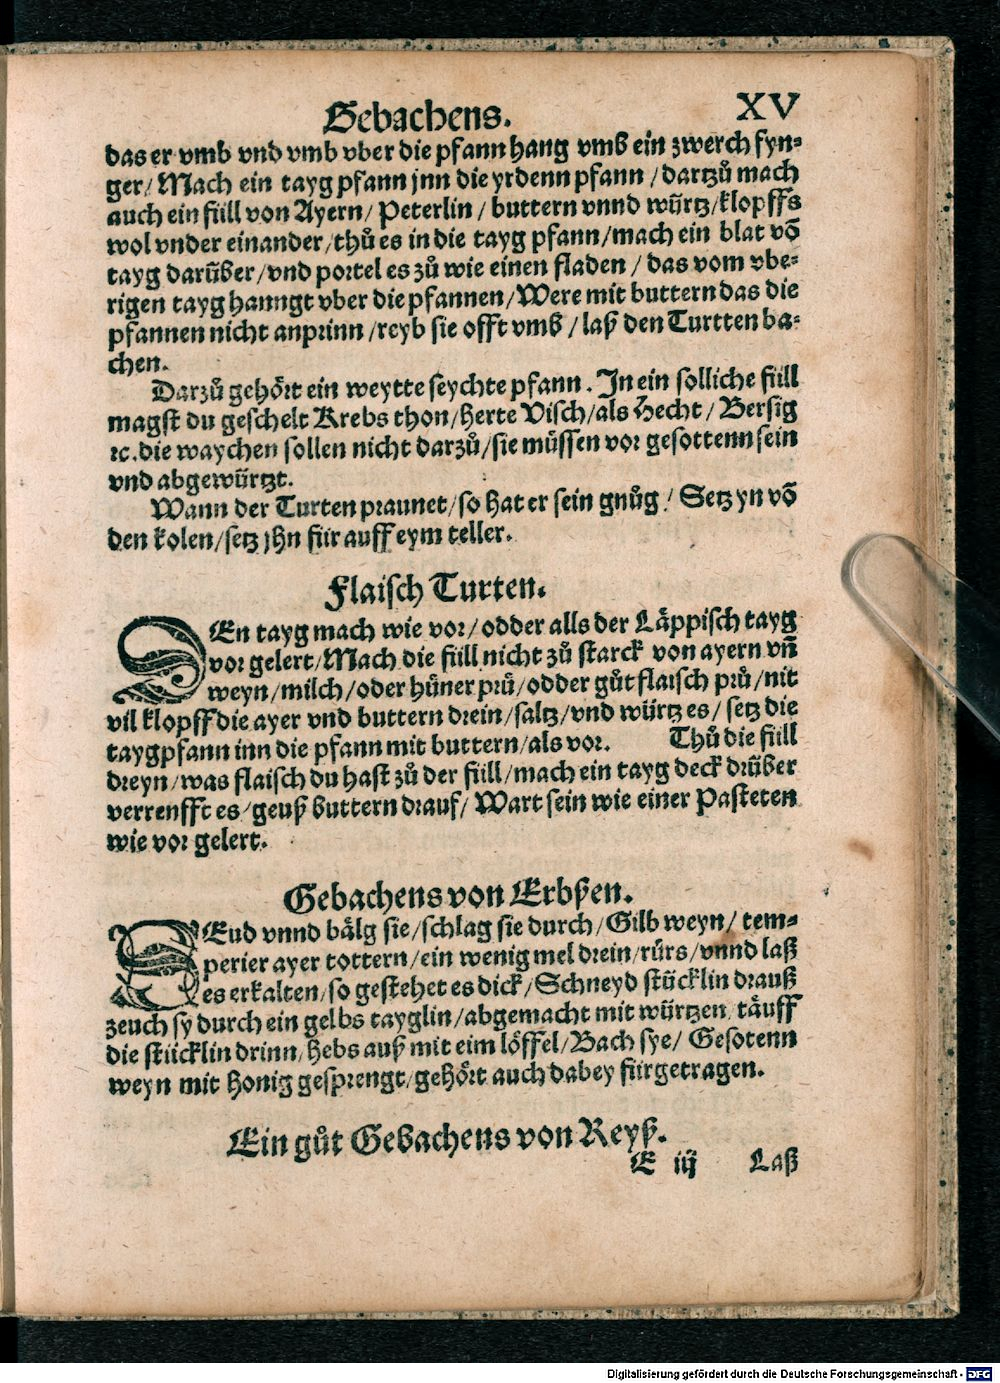 Gebachens. XV
das er vmb vnd vmb vber die pfann hang vmb ein zwerch fyn⸗
ger/ Mach ein tayg pfann jnn die yrdenn pfann / dartzů mach
auch ein füll von Ayern/ Peterlin / buttern vnnd würtz/klopffs
wol vnder einander/thů es in die tayg pfann/mach ein blat võ
tayg darüber/vnd portel es zů wie einen fladen / das vom vbe⸗
rigen tayg hanngt vber die pfannen/Were mit buttern das die
pfannen nicht anprinn/reyb sie offt vmb / laß den Turtten ba⸗
chen.
Darzů gehört ein weytte seychte pfann. In ein solliche füll
magst du geschelt Krebs thon/herte Visch/als Hecht/ Bersig
ꝛc.die waychen sollen nicht darzů/sie müssen vor gesottenn sein
vnd abgewürtzt.
Wann der Turten praunet/so hat er sein gnůg/ Setz yn võ
den kolen/setz jhn für auff eym teller.
Flaisch Turten.
DEn tayg mach wie vor/odder alls der Läppisch tayg
vor gelert/Mach die füll nicht zů starck von ayern vñ
weyn/milch/oder hüner prü/odder gůt flaisch prů/nit
vil klopff die ayer vnd buttern drein/saltz/vnd würtz es/ setz die
taygpfann inn die pfann mit buttern/als vor. Thů die füll
dreyn/was flaisch du hast zů der füll/mach ein tayg deck drüber
verrenfft es/geuß buttern drauf/ Wart sein wie einer Pasteten
wie vor gelert.
Gebachens von Erbßen.
SEud vnnd bälg sie/schlag sie durch/Gilb weyn/ tem⸗
perier ayer tottern/ein wenig mel drein/rürs/vnnd laß
es erkalten/so gestehet es dick/Schneyd stücklin drauß
zeuch sy durch ein gelbs tayglin/abgemacht mit würtzen/täuff
die stücklin drinn/hebs auß mit eim löffel/Bach sye/ Gesotenn
weyn mit honig gesprengt/gehört auch dabey fürgetragen.
Ein gůt Gebachens von Reyß.
E iij Laß
Digitalisierung gefördert durch die Deutsche Forschungsgemeinschaft - DFG